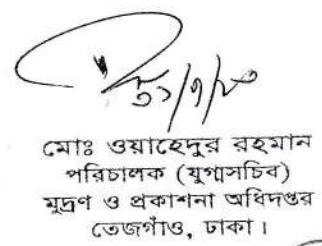 ৩১/৭/২০
মোঃ ওয়াহেদুর রহমান
পরিচালক (যুগ্মসচিব)
মুদ্রণ ও প্রকাশনা অধিদপ্তর
তেজগাঁও, ঢাকা।